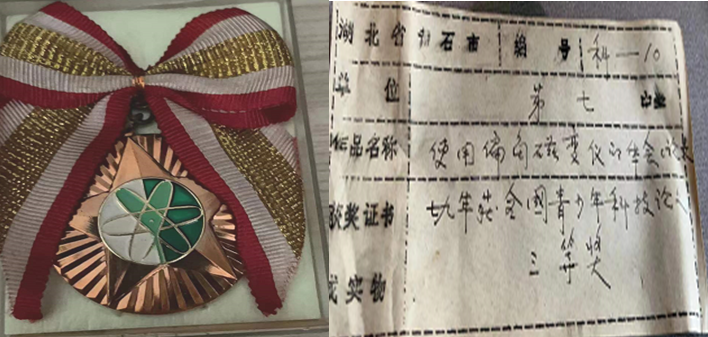 湖北省黄石市 编号 科—10
单位 第七中学
作品名称 使用偏角磁变仪的体会论文
获奖证书 七九年获全国青少年科技论文
三等奖
或实物